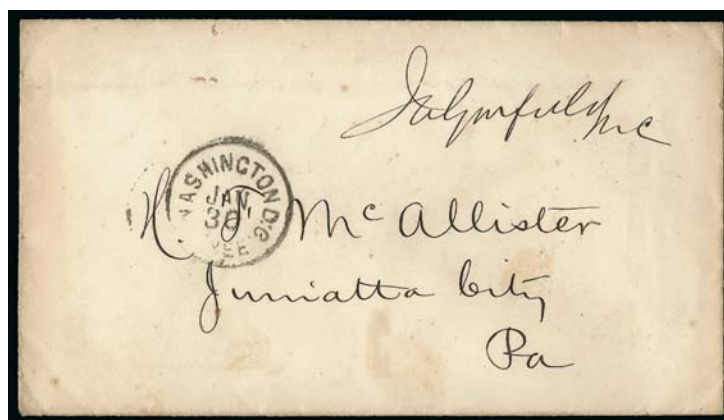 JAGarfield MC
WASHINGTON D.C.
JAN
30
FREE
H. J. McAllister
Juniatta City
Pa